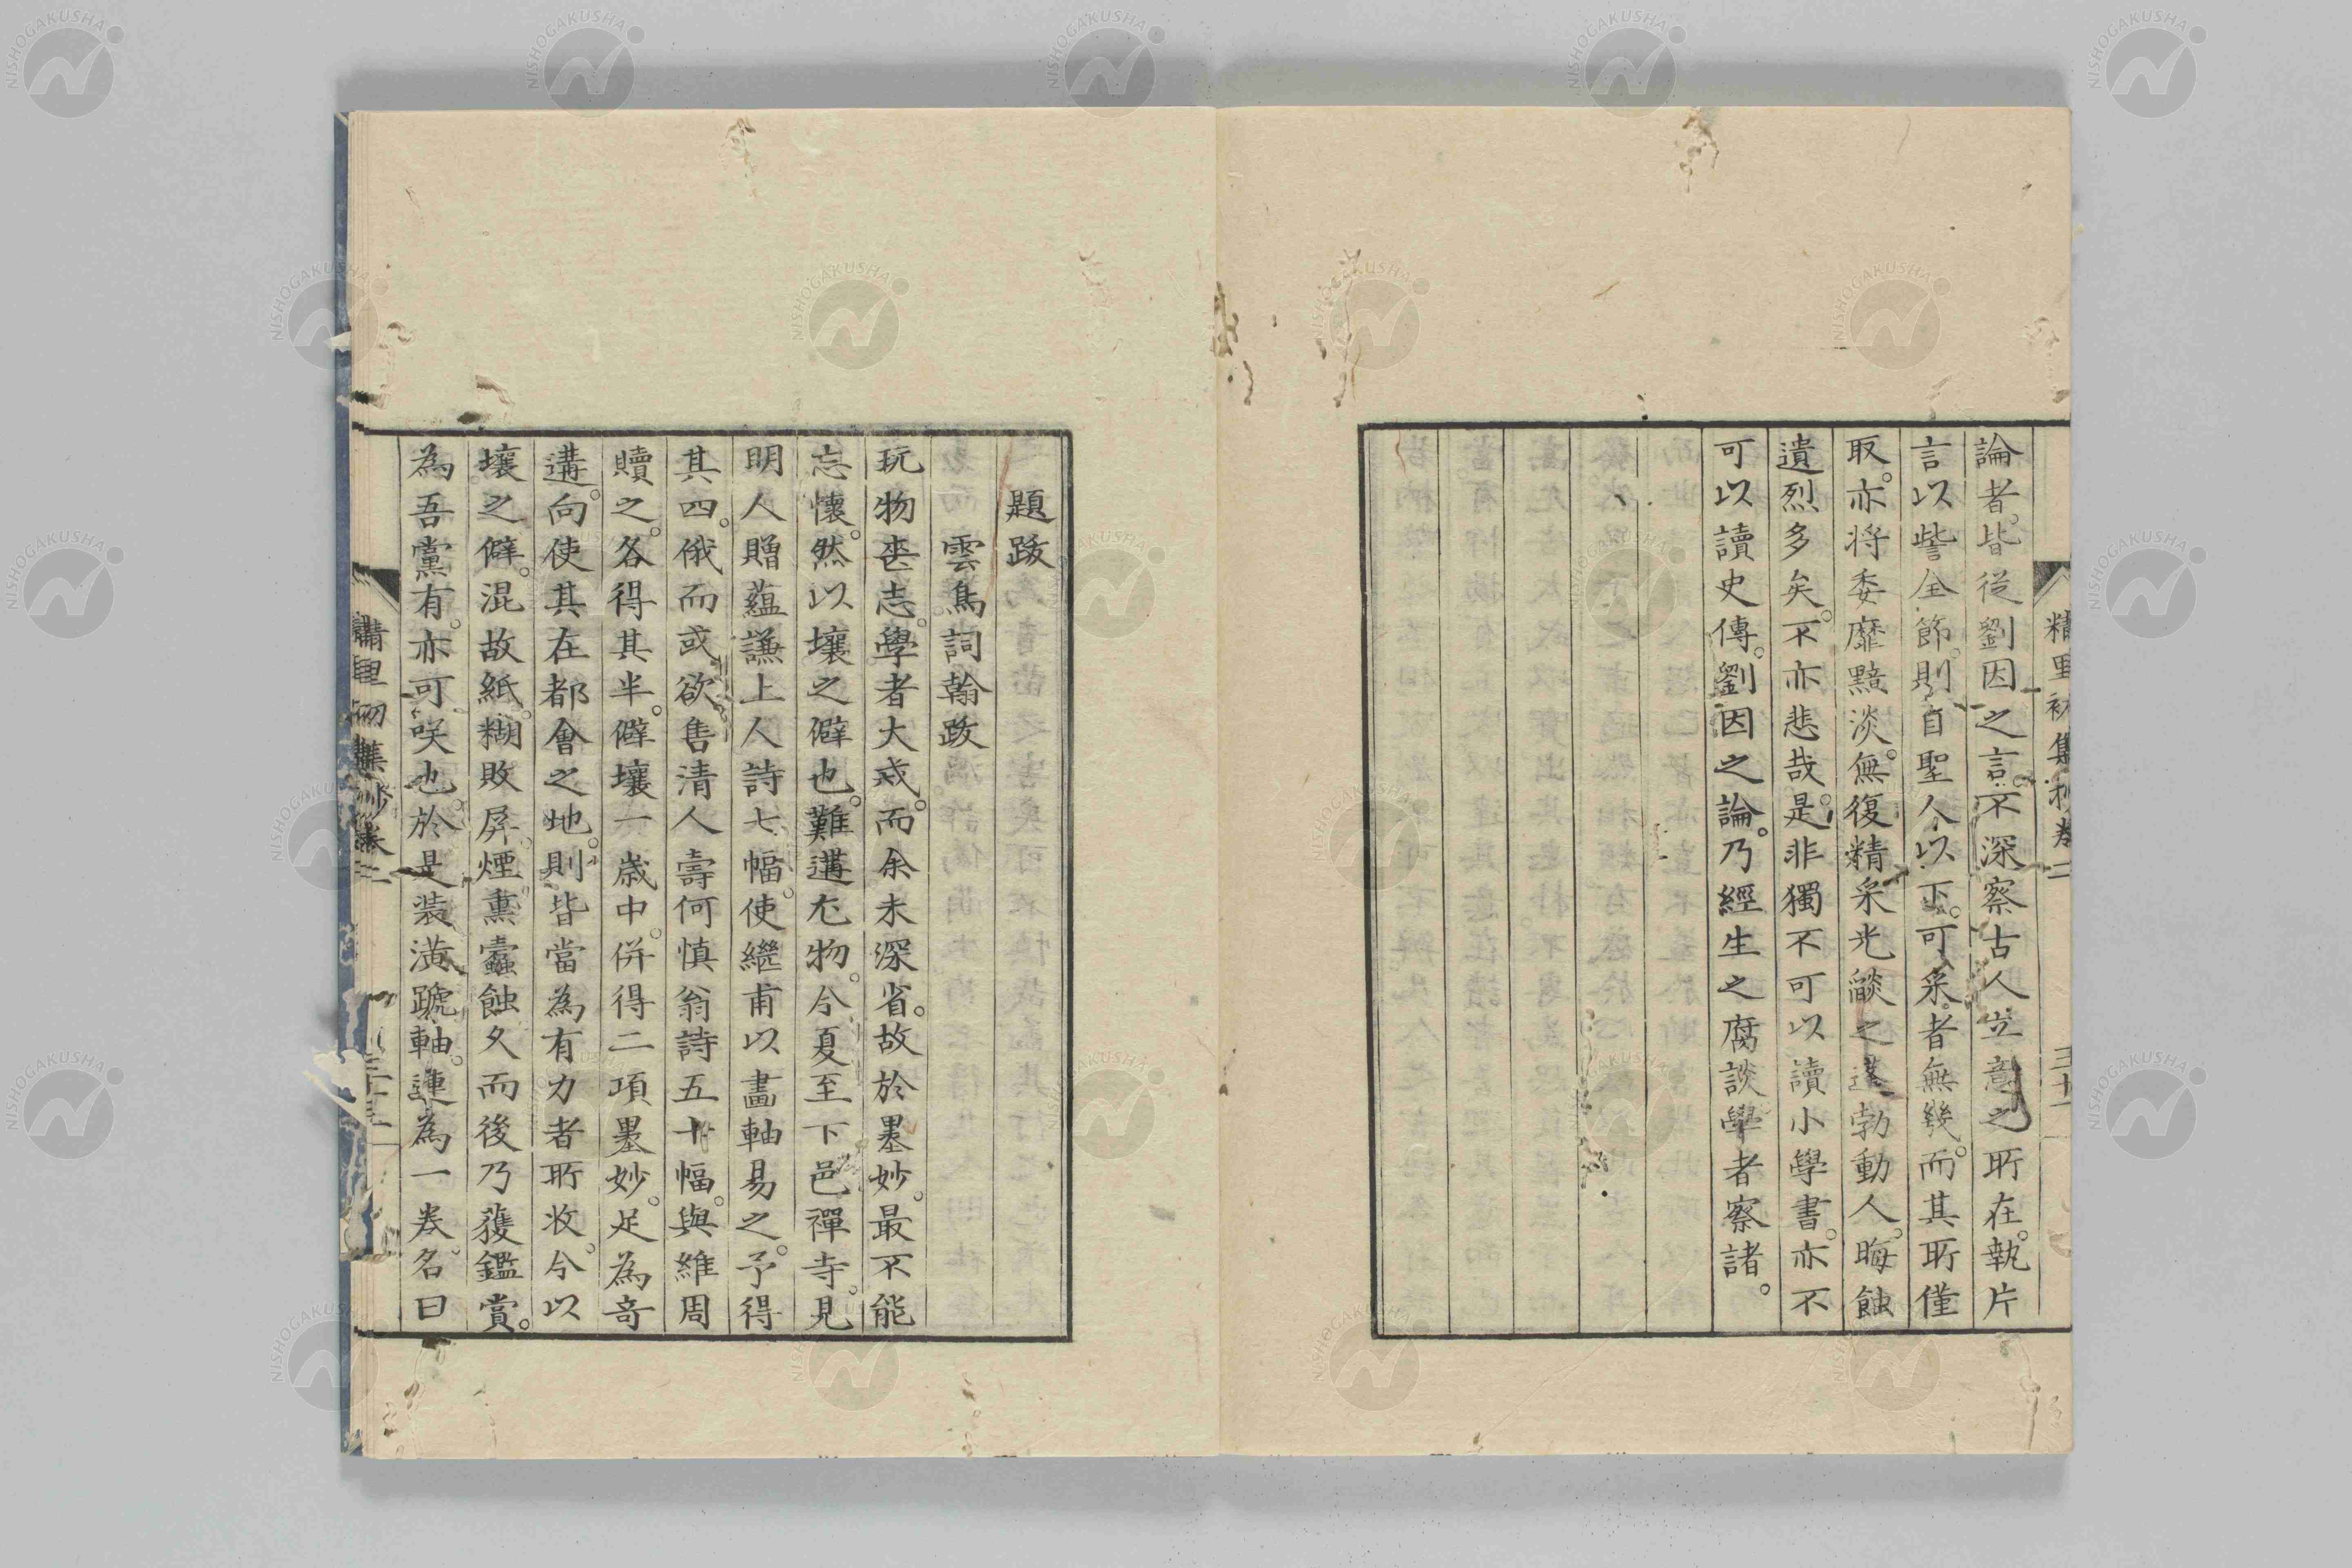 精里初集抄卷二
三十一
論者。皆從劉因之言。不深察古人立意之所在。執片
言以訾全節。則自聖人以下。可采者無幾。而其所僅
取。亦将委靡黯淡。無復精采光燄之蓬勃動人。晦蝕
遺烈多矣。不亦悲哉。是非獨不可以讀小學書。亦不
可以讀史傳。劉因之論。乃經生之腐談學者察諸。
題跋
雲鳥詞翰跋
玩物喪志。學者大戒。而余未深省。故於墨妙。最不能
忘懷。然以壤之僻也。難遘尤物。今夏至下邑禪寺。見
明人贈蘊謙上人詩七幅。使繼甫以畫軸易之。予得
其四。俄而或欲售清人壽何慎翁詩五十幅。與維周
贖之。各得其半。僻壤一歲中。併得二項墨妙。足為奇
遘。向使其在都會之地。則皆當為有力者所收。今以
壤之僻。混故紙。糊敗屏。煙熏蠹蝕久而後乃獲鑑賞。
為吾黨有。亦可咲也。於是装潢號軸。連為一卷。名曰
精里初集抄卷二
NISHOGAKUSHA